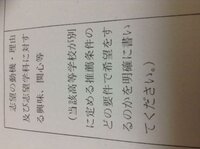 志望の動機・理由
及び志望学科に対す
る興味、関心等
(当該高等学校が別
に定める推薦条件の
どの要件で希望をす
るのかを明確に書い
てください。)